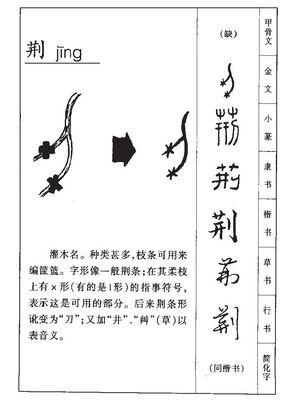 荆 jīng
灌木名。种类甚多,枝条可用来
编筐篮。字形像一般荆条;在其柔枝
上有×形(有的是l形)的指事符号,
表示这是可用的部分。后来荆条形
讹变为“刀”;又加“井”、“艸”(草)以
表音义。
(缺)
荆
荆
荆
荆
荆
(同楷书)
甲骨文
金文
小篆
隶书
楷书
草书
行书
简化字